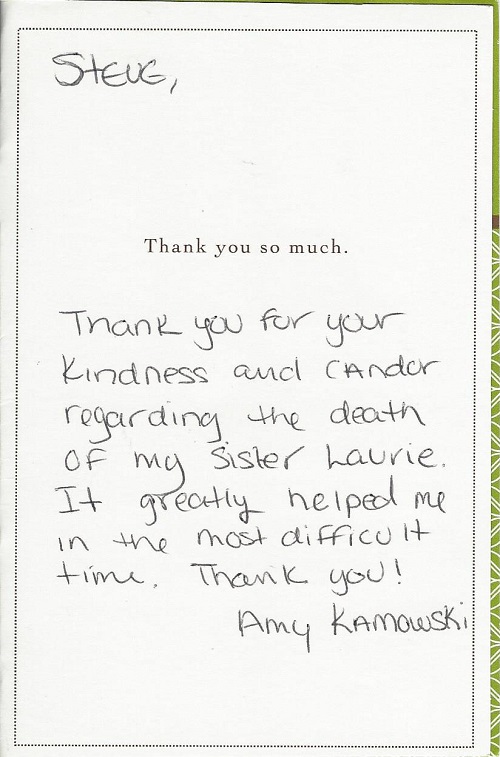 Steve,
Thank you so much.
Thank you for your
kindness and candor
regarding the death
of my sister Laurie.
It greatly helped me
in the most difficult
time. Thank you!
Amy Kamowski